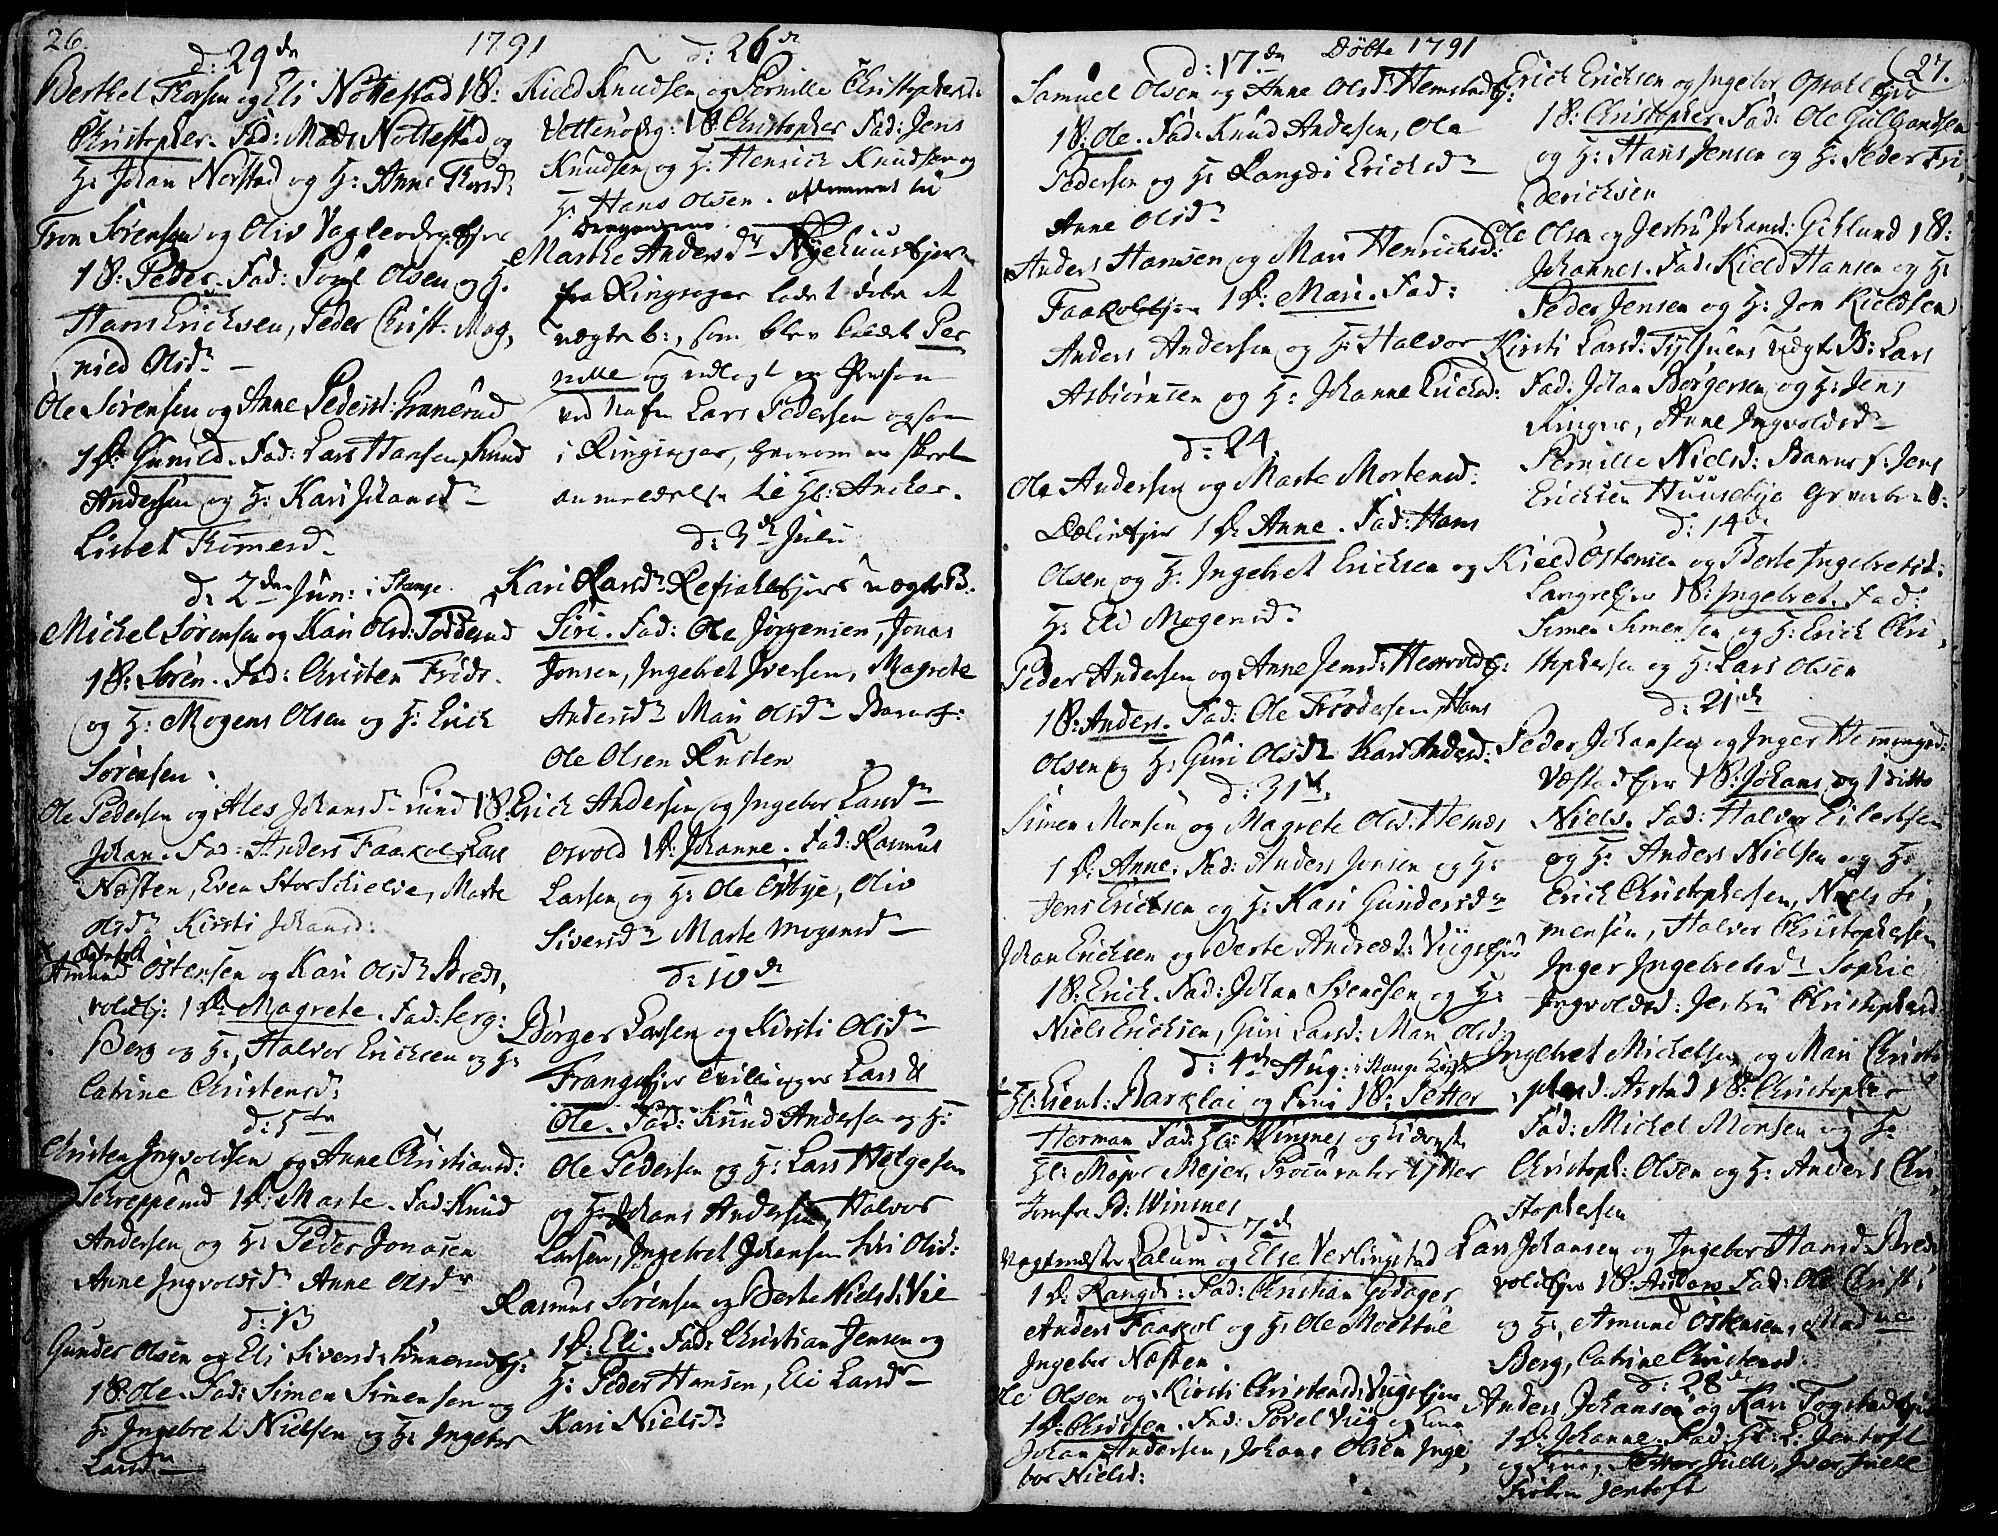 26.
1791
d: 29de
Berthel Thorsen og Eli Nöttestad 1 B:
Christopher. Fad: Mads Nöttestad og
H: Johan Norstad og H: Anne Thorsd:
Tron Sörensen og Oliv
1 B: Peder. Fad: Poul Olsen og H:
Hans Erichsen, Peder Christ: Mag,
nild Olsdr
Ole Sörensen og Anne Pedersd: Granerud
1 P: Gunild. Fad: Lars Hansen, Knud
Andersen og H: Kari Johansdr
Lisbet Tommesd
d: 2den Jun: i Stange
Michel Sörensen og Kari Olsd: Todderud
1 B: Sören. Fad: Christen Fridr.
og H: Mogens Olsen og H: Erich
Sörensen
Ole Pedersen og Ales Johansdr Lund 1 B:
Johan. Fad: Anders Faakol, Lars
Næsten, Even Stor Schielve, Marte
Olsdr Kirsti Johansd:
Amund Östensen og Kari Olsdr Bred,
voldej: 1 P: Magrete. Fad: Serg:
Berg og H: Halvor Erichsen og H:
Catrine Christensd:
d: 5te
Christen Ingvoldsen og Anne Christiansd:
Schreppenrud 1 P: Marte. Fad: Knud
Andersen og H: Peder Jonasen
Anne Ingvoldsdr Anne Olsdr
d: 13
Gunder Olsen og Eli Siversd: Finnerudej:
1 B: Ole. Fad: Simen Simensen og
H: Ingebret Nielsen og H: Ingebor
Larsdr
d: 26de
Kield Knudsen og Pernille Christophersd:
1 B: Christopher Fad: Jens
Knudsen og H: Henrich Knudsen og
H: Hans Olsen.
Marthe Andersdr Nyehuusejer
fra Ringsager ladet döbe et
uægte b:, som blev kaldet Per
nille og udlagt en Person
ved Nafn Lars Pedersen ogsaa
i Ringsager, hvorom er skeet
anmeldelse til Hl: Ancher.
d: 3de Juli
Kari Larsdr uægte B.
Siri. Fad: Ole Jörgensen, Jonas
Jonsen, Ingebret Iversen, Magrete
Andersdr Mari Olsdr Barnef:
Ole Olsen Kusten
Erich Andersen og Ingebor Larsdr
Osvold 1 P: Johanne. Fad: Rasmus
Larsen og H: Ole Östbye, Oliv
Siversdr Marte Mogensd
d: 10de
Börger Larsen og Kirsti Olsdr
Frangsejer Tvillinger Lars &
Ole. Fad: Knud Andersen og H:
Ole Pedersen og H: Lars Helgesen
og H: Johans Andersen, Halvor
Larsen, Ingebret Johansen Siri Olsd:
Rasmus Sörensen og Berte Nielsd: Vie
1 P: Eli. Fad: Christian Jensen og
H: Peder Hansen, Eli Larsdr
Kari Nielsdr
Döbte 1791
27.
d: 17de
Samuel Olsen og Anne Olsdr Hemstadej:
1 B: Ole. Fad: Knud Andersen, Ole
Pedersen og H: Rangdi Erichsd
Anne Olsdr
Anders Hansen og Mari Henrichsd:
Faakolejer 1 P: Mari. Fad:
Anders Andersen og H: Halvor
Asbiörnsen og H: Johanne Erichsd:
d: 24.
Ole Andersen og Marte Mortensd:
Dælinejer 1 P: Anne. Fad: Hans
Olsen og H: Ingebret Erichsen og
H: Eli Mogensdr
Peder Andersen og Anne Jensd:
1 B: Anders. Fad: Ole Frodesen, Hans
Olsen og H: Guri Olsdr Kari Andersd:
d: 31te
Simen Monsen og Magrete Olsd: Hemnes
1 P: Anne. Fad: Anders Jensen og H:
Jens Erichsen og H: Kari Gundersdr
Johan Erichsen og Berte Andreæd: Viigsejer
1 B: Erich. Fad: Johan Svendsen og H:
Niels Erichsen, Guri Larsd: Mari Olsd:
d: 4de Aug: i Stange Kirke
Hl: Lieut: Barklai og Frue 1 B: Petter
Herman Fad: Hl: Winsnes og
Hl: Mejer, Procurator Ytter
Jomfr: Winsnes
d: 7de
Calum og Else Verlingstad
1 P: Rangdi: Fad: Christian Godager
Anders Faakol og H: Ole Moestue
Ingebor Næsten.
Ole Olsen og Kirsti Christensd: Viigsejer
1 P: Christen. Fad: Povel Viig og
Johan Andersen, Johans Olsen Inge,
bor Nielsd:
Erich Erichsen og Ingebor Opsahl ejer
1 B: Christopher. Fad: Ole Gulbrandsen
og H: Hans Jensen og H: Peder Fri,
derichsen
Ole Olsen og Jertru Johansd: Giklund 1 B:
Johannes. Fad: Kield Hansen og H:
Peder Jensen og H: Jon Kieldsen
Kirsti Larsd: uægte B: Lars
Fad: Johan Börgersen og H: Jens
Ringer, Anne Ingvoldsd
Pernille Nielsd: Barnef: Jens
Erichsen Huusebye
d: 14de
Kield Östensen og Berte Ingebretsd:
1 B: Ingebret. Fad:
Simen Simensen og H: Erich Chri,
stophersen og H: Lars Olsen
d: 21de
Peder Johansen og Inger Hemmingsd:
Væstadejer 1 B: Johans og 1 ditto
Niels. Fad: Halvor Eilertsen
og H: Anders Nielsen og H:
Erich Christophersen, Niels Si,
mensen, Halvor Christophersen
Inger Ingebretsdr Sophie
Ingvoldsd: Jertru Christophersd
Ingebret Michelsen og Mari Christo
phersd. Arstad 1 B: Christopher
Fad: Michel Monsen og H:
Christoph: Olsen og H: Anders Chri,
stophersen
Lars Johansen og Ingebor Hansd: Bred
voldejer 1 B: Anders Fad: Ole Christ:
og H: Amund Östensen,
Berg, Catrine Christensd.
d: 28de
Anders Johansen og Kari Fogstadejer
1 P: Johanne. Fad: Hl: L: Jentoft
og Frue, Petter Juell, Iver Juell
Fröken Jentoft